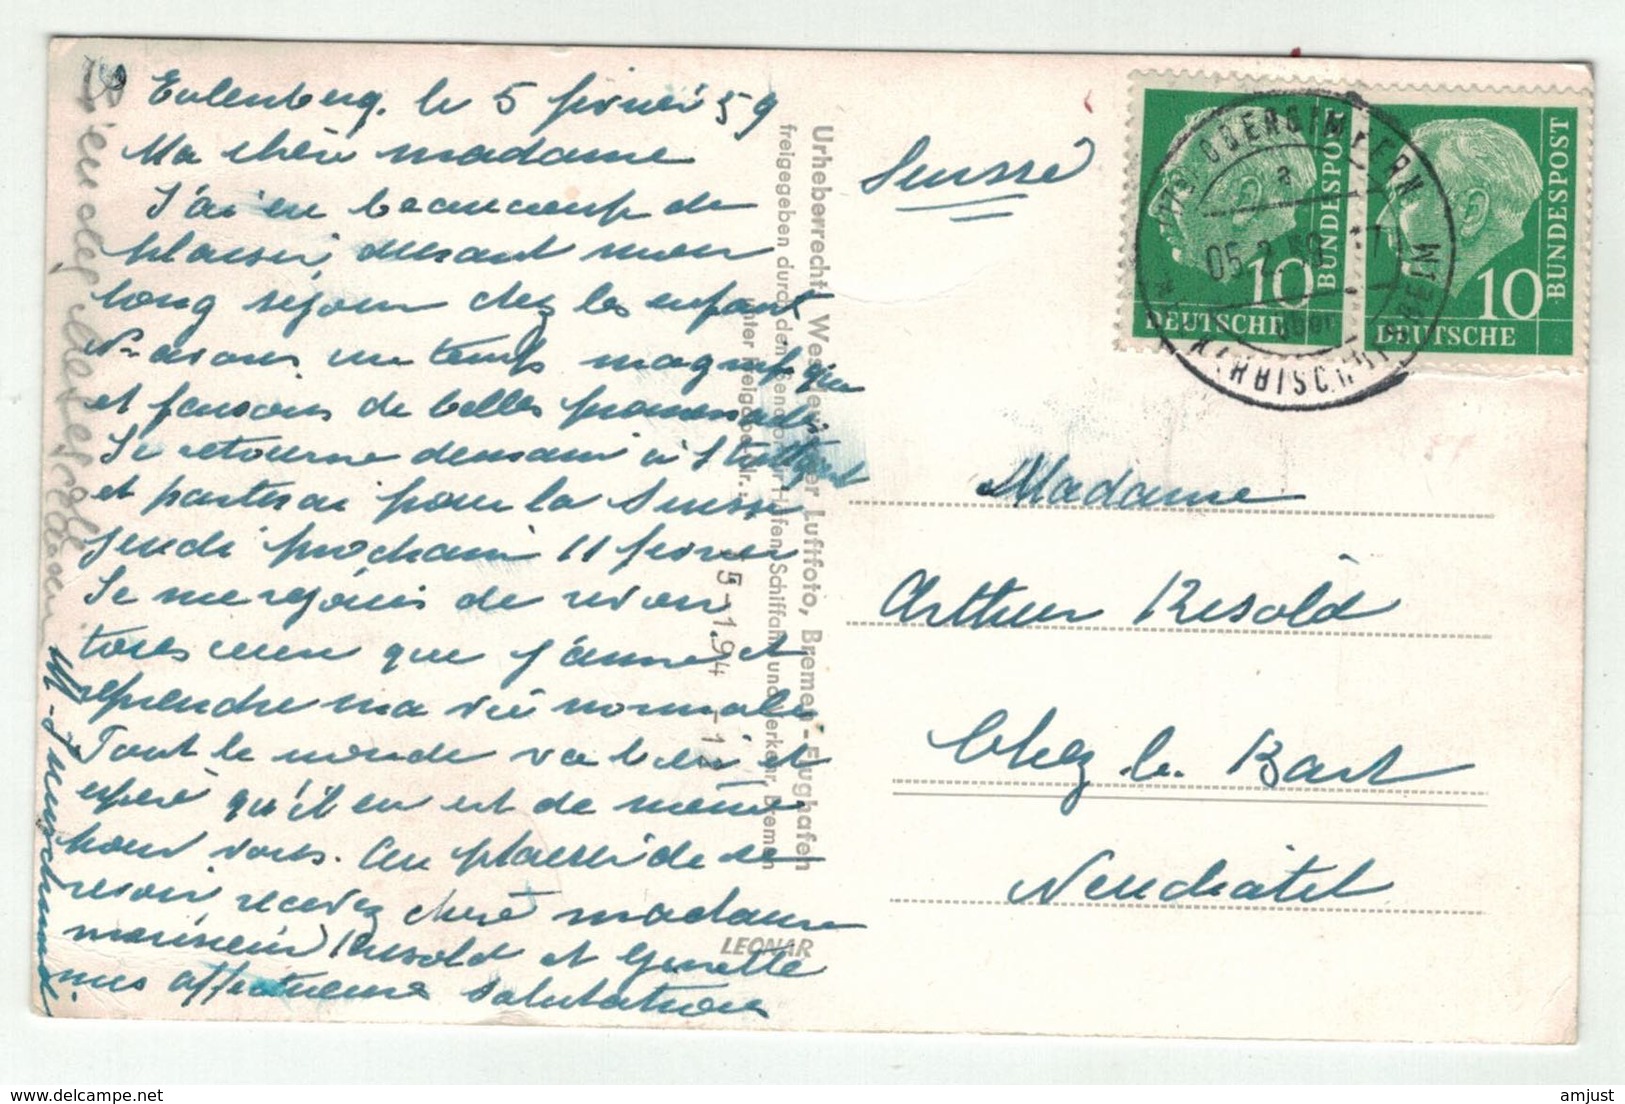 Eulenberg, le 5 février 59
Ma chère madame
J'ai eu beaucoup de
plaisir, durant mon
long séjour chez les enfants
N-avons un temps magnifique
et faisons de belles promenades
Je retourne demain à Stuttgart
et partirai pour la Suisse
jeudi prochain 11 février
Je me réjouis de revoir
tous ceux que j'aime et
reprendre ma vie normale
Tout le monde va bien et
espère qu'il en est de même
pour vous. Au plaisir de se
revoir recevez chère madame
monsieur Resold et Ginette
mes affectueuses salutations
Urheberrecht: Weser Luftfoto, Bremen-Flughafen
freigegeben durch den Senator Häfen, Schiffahrt und Verkehr, Bremen
unter Freigabe-Nr.:
LEONAR
Suisse
DEUTSCHE
BUNDESPOST
10
DEUTSCHE
BUNDESPOST
10
05.2.59
Madame
Arthur Resold
Chez le Bart
Neuchâtel
amjust